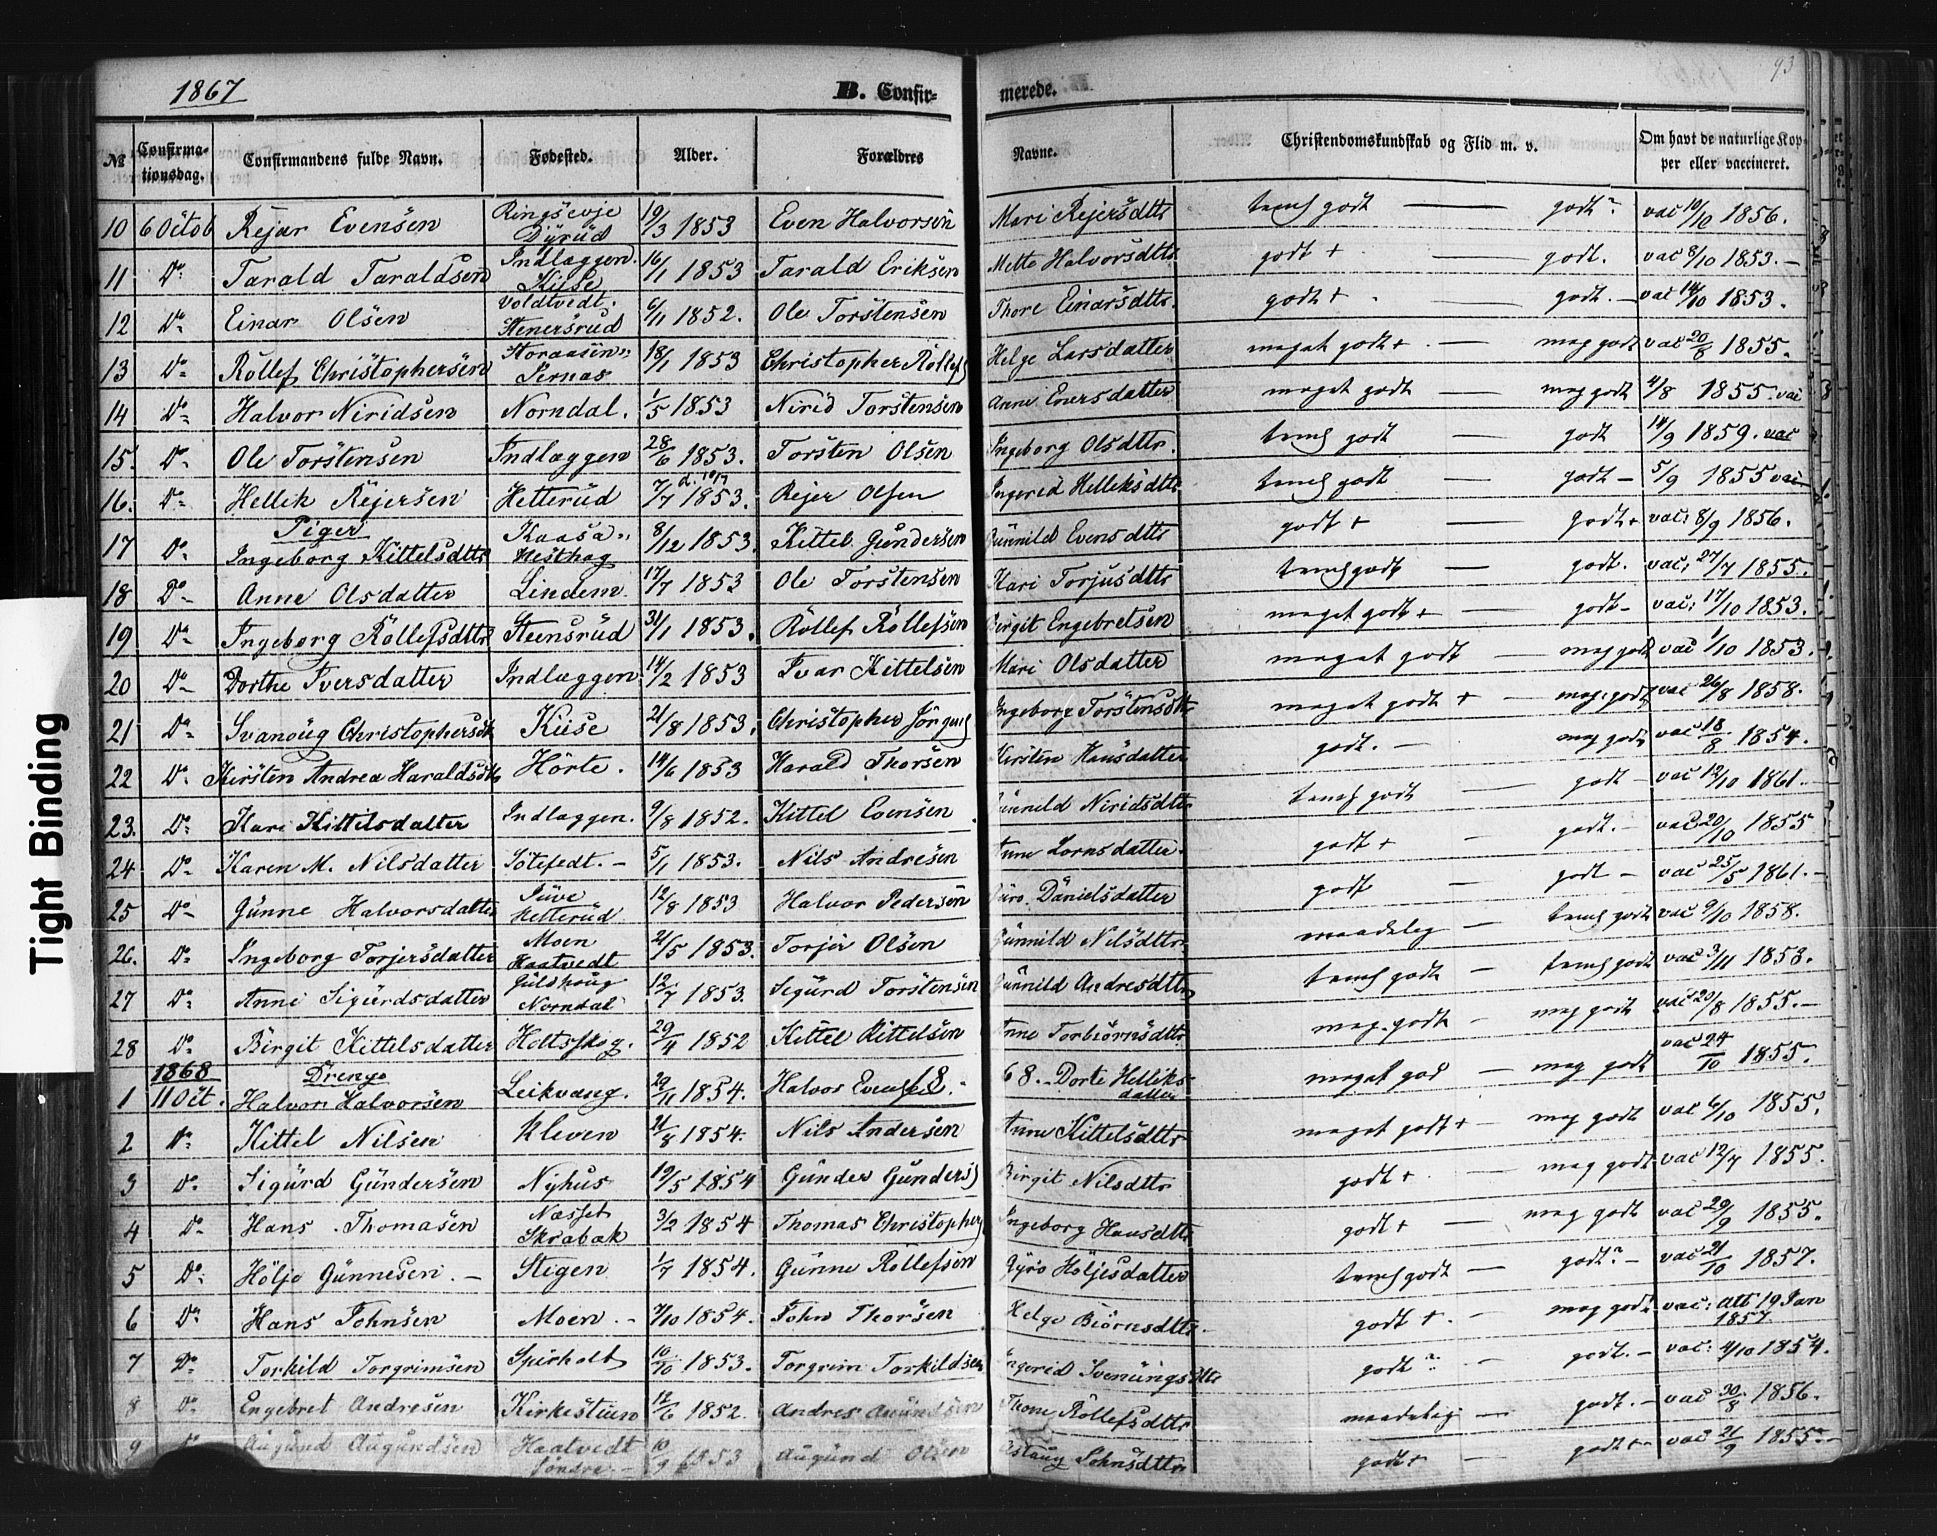 1867 B. Confir- merede. 93
№ Confirma- tionsdag. Confirmandens fulde Navn. Fødested. Alder. Forældres Navne. Christendomskundskab og Flid m. v. Om havt de naturlige Kop- per eller vaccineret.
10 6 Octob Rejar Evensen Ringsevje Dyrud 19/3 1853 Even Halvorsen Mari Rejersdttr temf godt — godt vac 10/10 1856.
11 Do Tarald Taraldsen Indlæggen Kise 16/1 1853 Tarald Eriksen Mette Halvorsdttr godt + — godt. vac 8/10 1853. —
12 Do Einar Olsen Voldtvedt. Stenersrud 6/11 1852. Ole Torstensen Thore Einarsdttr godt + godt. — vac 14/10 1853.
13 Do Rollef Christophersen Storaasen Pernas 18/1 1853 Christopher Rollefs Helge Larsdatter meget godt + — meg godt vac 20/8 1855.
14 Do Halvor Niridsen Norndal. 1/5 1853 Nirid Torstensen Anne Enersdatter meget godt — meg godt 4/8 1855. vac
15. Do Ole Torstensen Indlæggen 28/6 1853. Torsten Olsen Ingeborg Olsdttr. temf godt — godt 14/9 1859. vac
16. Do Hellik Rejersen Hetterud 7/7 1853. Rejer Olsen Ingerid Helleksdttr temf godt — godt — 5/9 1855 vac
Piger
17 Do Ingeborg Kittelsdttr Kaasa Hesthag 8/12 1853. Kittel Gundersen Gunnild Evensdttr godt + — godt + vac: 8/9 1856.
18 Do Anne Olsdatter Lindem 17/7 1853 Ole Torstensen Kari Torjusdttr temf godt — godt. vac: 27/7 1855.
19 Do Ingeborg Rollefsdttr Steensrud 31/1 1853. Rollef Rollefsen Birgit Engebretsen meget godt + — godt — vac: 17/10 1853.
20 Do Dorthe Iversdatter Indlæggen 14/2 1853 Ivar Kittelsen Mari Olsdatter meget godt — meg godt vac 1/10 1853.
21 Do Svanoug Christophersdtt Kiise 21/8 1853. Christopher Jørgens Ingeborg Torstensdttr meget godt + — meg. godt vac 26/8 1858.
22 Do Kirsten Andrea Haraldsdtt Hörte. 14/6 1853 Harald Thorsen Kirsten Hansdatter godt. — meg godt vac 18/8 1854.
23. Do Kari Kittilsdatter Indlaggen. 9/8 1852. Kittel Evensen Gunnild Niridsdttr temf godt — godt — vac 12/10 1861.
24 Do Karen M. Nilsdatter Sötefedt. — 5/1 1853. Nils Andresen Anne Lornsdatter. godt + — godt. — vac 20/10 1855
25 Do Gunne Halvorsdatter Juve Hetterud 12/8 1853 Halvor Pedersen Guro Danielsdatter godt — godt — vac 25/5 1861. —
26. Do Ingeborg Torjersdatter Moen Haatvedt 21/5 1853. Torjer Olsen Gunnild Nilsdttr. maadeleg — temf godt vac 9/10 1858.
27 Do Anne Sigurdsdatter Guldhoug Norndal 12/7 1853. Sigurd Torstensen Gunnild Andresdttr temf godt — temf godt vac 3/11 1853.
28 Do Birgit Kittelsdatter Holtsskog. 29/4 1852 Kittel Kittelsen Anne Torbiörnsdttr meg. godt — meg godt vac 20/8 1855. —
1868 Drenge
1 11 Oct. Halvor Halvorsen Leikvang. 29/11 1854. Halvor Evensen 68. 68. — Dorte Helliks- datter meget god — meg godt vac 24/10 1855.
2 Do Kittel Nilsen Kleven 21/8 1854. Nils Andersen Anne Kittelsdttr meget godt + — meg godt vac 6/10 1855.
3 Do Sigurd Gundersen Nyhus 19/5 1854 Gunder Gunders Birgit Nilsdttr godt + — meg godt vac 12/7 1855.
4 Do Hans Thomasen Næsset Skrabak 3/2 1854 Thomas Christophers Ingeborg Hansdttr godt + — meg godt vac 29/9 1855.
5 Do Höljo Gunnesen. — Stigen 1/7 1854. Gunne Rollefsen Gyro Höljesdatter temf godt — godt — vac 21/10 1857.
6 Do Hans Johnsen Moen. — 7/10 1854. John Thorsen Helge Biörnsdttr. godt + — meg godt vac: Att 19 Jan 1857.
7 Do Torkild Torgrimsen Spirholt 10/10 1853. Torgrim Torkildsen Ingerid Svenungsdttr godt — godt. — vac: 4/10 1854.
8 Do Engebret Andresen Kirkestuen 12/6 1852. Andres Amundsen Thone Rollefsdttr maadeleg — godt. — vac 30/8 1856.
9 Do Augund Augundsen Haatvedt söndre — 10/9 1853 Augund Olsen Astaug Johnsdttr godt + — godt + — vac 21/9 1855 —
Tight Binding